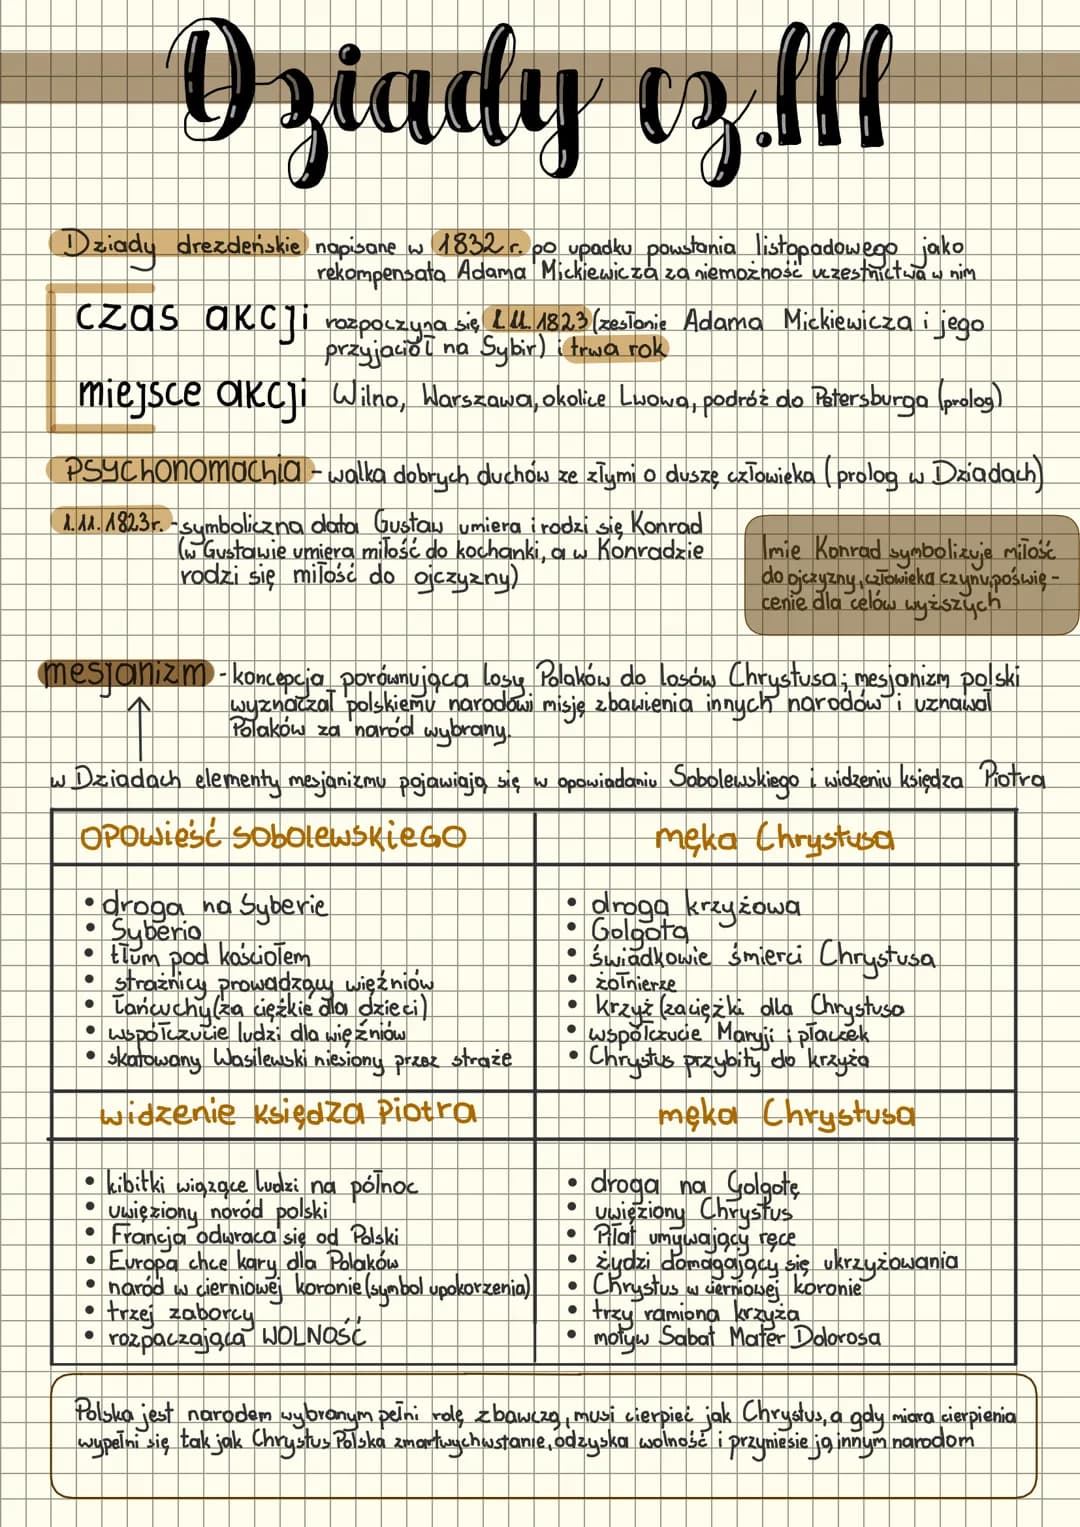 Dziady cz.III
Dziady drezdeńskie napisane w 1832 r. po upadku powstania listopadowego jako
rekompensata Adama Mickiewicza za niemożność uczestnictwa w nim
czas akcji rozpoczyna się 1.11.1823 (zesłanie Adama Mickiewicza i jego
przyjaciół na Sybir) i trwa rok
miejsce akcji Wilno, Warszawa, okolice Lwowa, podróż do Petersburga (prolog)
PSYChONOMAChIA - walka dobrych duchów ze złymi o duszę człowieka (prolog w Dziadach)
1.11.1823r. - symboliczna data Gustaw umiera i rodzi się Konrad
(w Gustawie umiera miłość do kochanki, a w Konradzie
rodzi się miłość do ojczyzny)
Imie Konrad symbolizuje miłość
do ojczyzny, człowieka czynu, poświę-
cenie dla celów wyższych
mesjanizm - koncepcja porównująca losy Polaków do losów Chrystusa; mesjanizm polski
wyznaczał polskiemu narodowi misję zbawienia innych narodów i uznawał
Polaków za naród wybrany.
w Dziadach elementy mesjanizmu pojawiają się w opowiadaniu Sobolewskiego i widzeniu księdza Piotra
OPOWieść SOBOLEWSKieGO
• droga na Syberie
• Syberia
• tłum pod kościołem
• strażnicy prowadzący więźniów
• łańcuchy (za ciężkie dla dzieci)
• współczucie ludzi dla więźniów
• skatowany Wasilewski niesiony przez straże
męka Chrystusa
• droga krzyżowa
• Golgota
• świadkowie śmierci Chrystusa
• żołnierze
• krzyż (za ciężki dla Chrystusa
• współczucie Maryji i płaczek
• Chrystus przybity do krzyża
widzenie księdza Piotra
• kibitki wiązące ludzi na północ
• uwięziony naród polski
• Francja odwraca się od Polski
• Europa chce kary dla Polaków
• naród w cierniowej koronie (symbol upokorzenia)
• trzej zaborcy
• rozpaczająca WOLNOŚĆ
męka Chrystusa
• droga na Golgotę
• uwięziony Chrystus
• Piłat umywający ręce
• żydzi domagający się ukrzyżowania
• Chrystus w cierniowej koronie
• trzy ramiona krzyża
• motyw Sabat Mater Dolorosa
Polska jest narodem wybranym pełni rolę zbawczą, musi cierpieć jak Chrystus, a gdy miara cierpienia
wypełni się tak jak Chrystus Polska zmartwychwstanie, odzyska wolność i przyniesie ją innym narodom